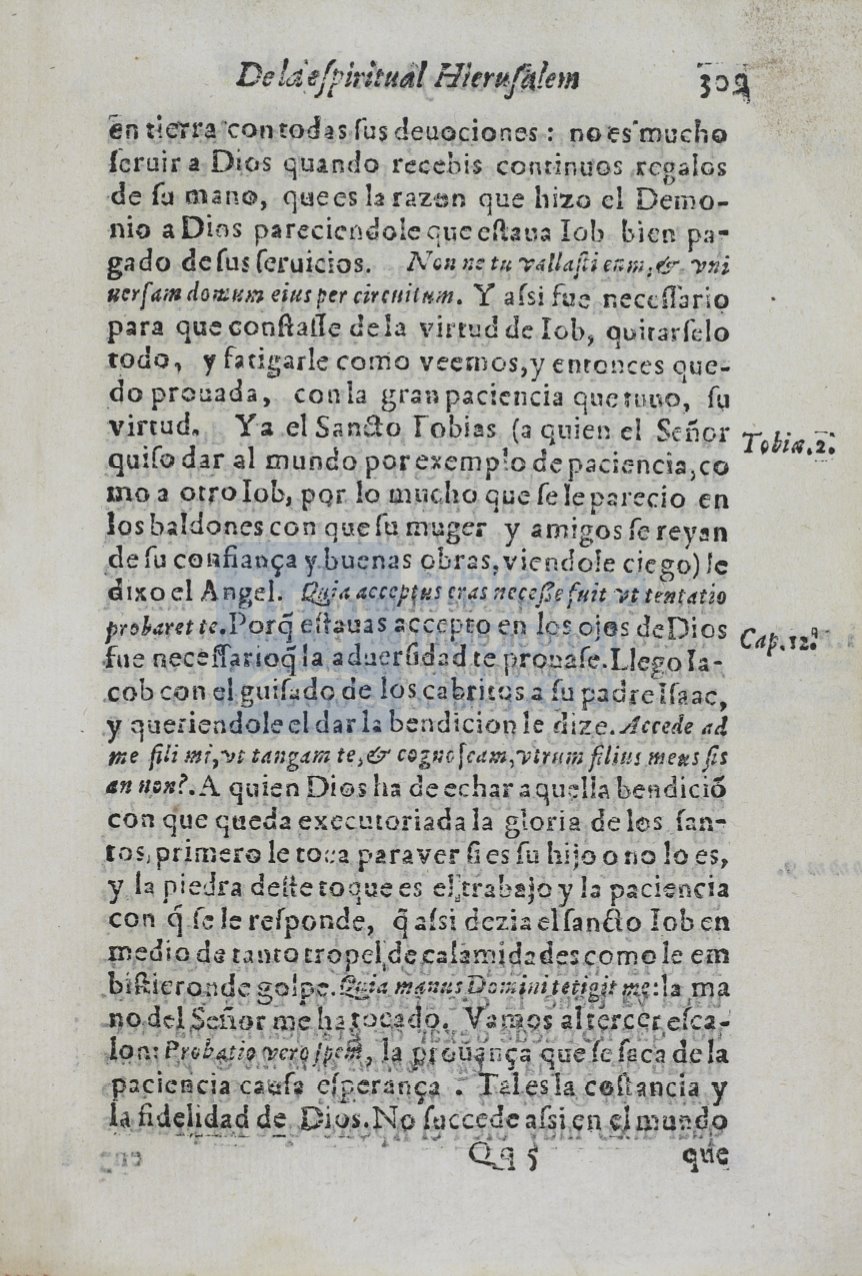 De la eſpiritual Hieruſalem 309
en tierra con todas ſus deuociones : no es mucho
ſeruir a Dios quando recebis continuos regalos
de ſu mano, que es la razon que hizo el Demo-
nio a Dios pareciendole que eſtaua Iob bien pa-
gado de ſus ſeruicios. Non ne tu vallaſti eum, & vni
uerſam domum eius per circuitum. Y aſsi fue neceſſario
para que conſtaſſe de la virtud de Iob, quitarſelo
todo, y fatigarle como veemos, y entonces que-
do prouada, con la gran paciencia que tuuo, ſu
virtud. Ya el Sancto Tobias (a quien el Señor
Tobiæ. 2.
quiſo dar al mundo por exemplo de paciencia, co
mo a otro Iob, por lo mucho que ſe le parecio en
los baldones con que ſu muger y amigos ſe reyan
de ſu confiança y buenas obras, viendole ciego) le
dixo el Angel. Quia acceptus eras neceſſe fuit vt tentatio
probaret te. Porq̃ eſtauas accepto en los ojos de Dios
Cap. 12.
fue neceſſario q̃ la aduerſidad te prouaſe. Llego Ia-
cob con el guiſado de los cabritos a ſu padre Iſaac,
y queriendole el dar la bendicion le dize. Accede ad
me fili mi, vt tangam te, & cognoſcam, vtrum filius meus ſis
an non?. A quien Dios ha de echar aquella bendiciõ
con que queda executoriada la gloria de los ſan-
tos, primero le toca para ver ſi es ſu hijo o no lo es,
y la piedra deſte toque es el trabajo y la paciencia
con q̃ ſe le reſponde, q̃ aſsi dezia el ſancto Iob en
medio de tanto tropel de calamidades como le em
biſtieron de golpe. Quia manus Domini tetigit me: la ma
no del Señor me ha tocado. Vamos al tercer eſca-
lon: Probatio vero ſpem, la prouança que ſe ſaca de la
paciencia cauſa eſperança . Tal es la coſtancia y
la fidelidad de Dios. No ſuccede aſsi en el mundo
Qq 5 que